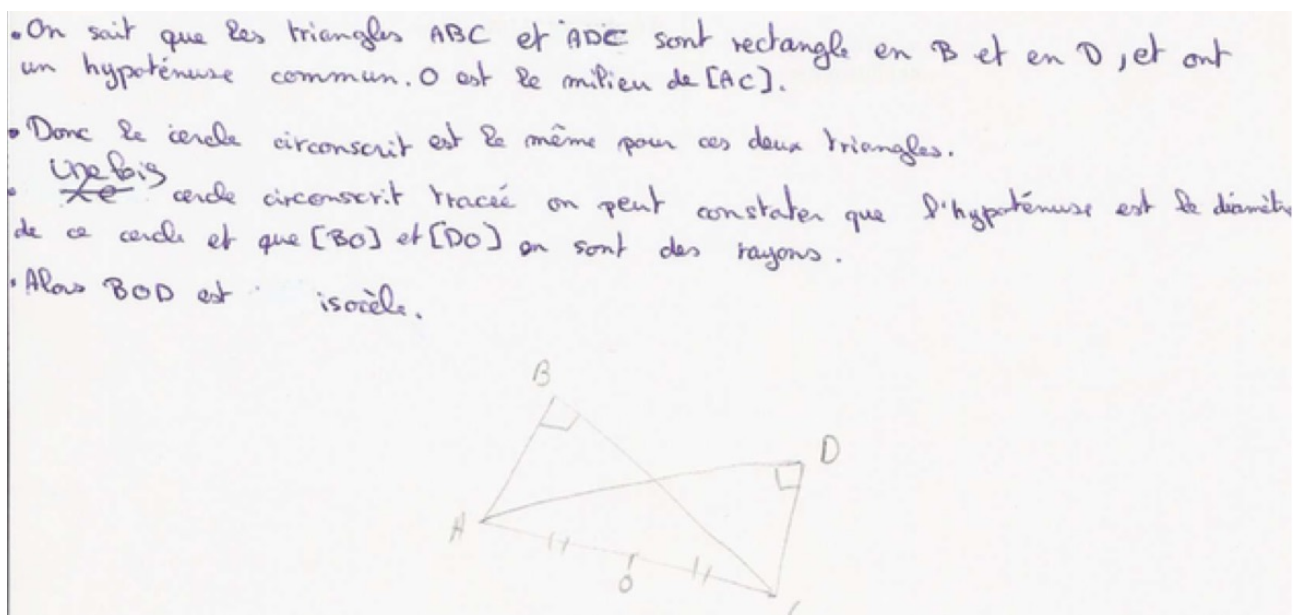 • On sait que les triangles ABC et ADC sont rectangle en B et en D, et ont
un hypoténuse commun. O est le milieu de [AC].
• Donc le cercle circonscrit est le même pour ces deux triangles.
• Une fois cercle circonscrit tracéé on peut constater que l'hypoténuse est le diamètre
de ce cercle et que [BO] et [DO] en sont des rayons.
• Alors BOD est isocèle.
B
D
A
O
C